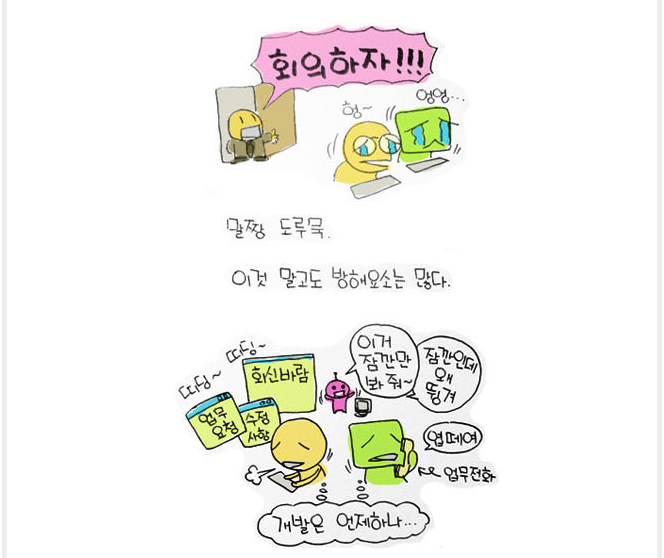 회의하자!!!
형~
엉엉...
말짱 도루묵.
이것 말고도 방해요소는 많다.
띠딩~
띠딩~
회신바람
업무
요청
수정
사항
이거
잠깐만
봐 줘~
잠깐인데
왜
튕겨
엽떼여
업무전화
개발은 언제하나...